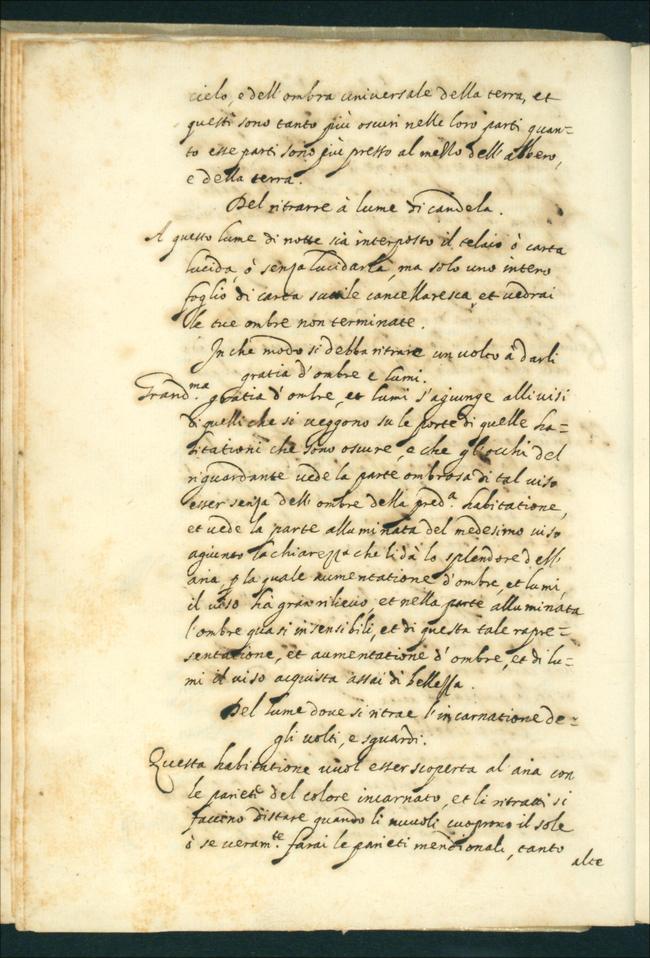 cielo, e dell'ombra universale della terra, et
questi sono tanto più oscuri nelle loro parti quan=
to esse parti sono più presso al mezzo dell'albero,
e della terra.
Del ritrarre à lume di candela.
A questo lume di notte sia interposto il telaio ò carta
lucida, ò senza lucidarla, ma solo uno intero
foglio di carta sutile cancellaresca, et vedrai
le tue ombre non terminate.
In che modo si debba ritrare un volto à darli
gratia d'ombre e lumi.
Grand.ma gratia d'ombre, et lumi s'agiunge alli visi
di quelli che si veggono su le porte di quelle ha=
bitationi che sono oscure, e che gl'occhi del
riguardante vede la parte ombrosa di tal viso
esser senza dell'ombre della pred.a habitatione,
et vede la parte alluminata del medesimo viso
agiunto la chiarezza che li dà lo splendore dell'
aria, p la quale aumentatione d'ombre, et lumi,
il viso ha gran rilievo, et nella parte alluminata
l'ombre quasi insensibili, et di questa tale rapre=
sentatione, et aumentatione d'ombre, et di lu=
mi il viso acquista assai di bellezza.
Del lume dove si ritrae l'incarnatione de=
gli volti, e sguardi.
Questa habitatione vuol esser scoperta al aria con
le parieti del colore incarnato, et li ritratti si
faccino distare quando li nuvoli cuoprono il sole
ò se veram.te farai le parieti meridionali, tanto
alte